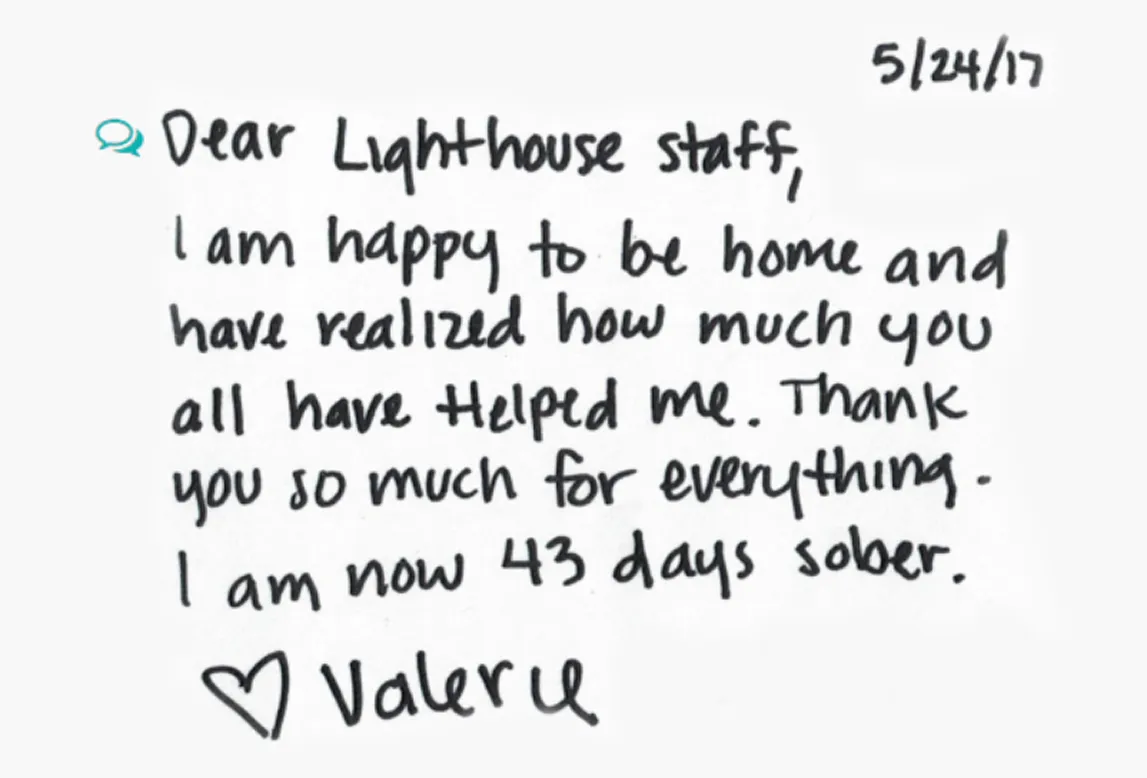 5/24/17
Dear Lighthouse staff,
I am happy to be home and
have realized how much you
all have Helped me. Thank
you so much for everything.
I am now 43 days sober.
♡ Valerie